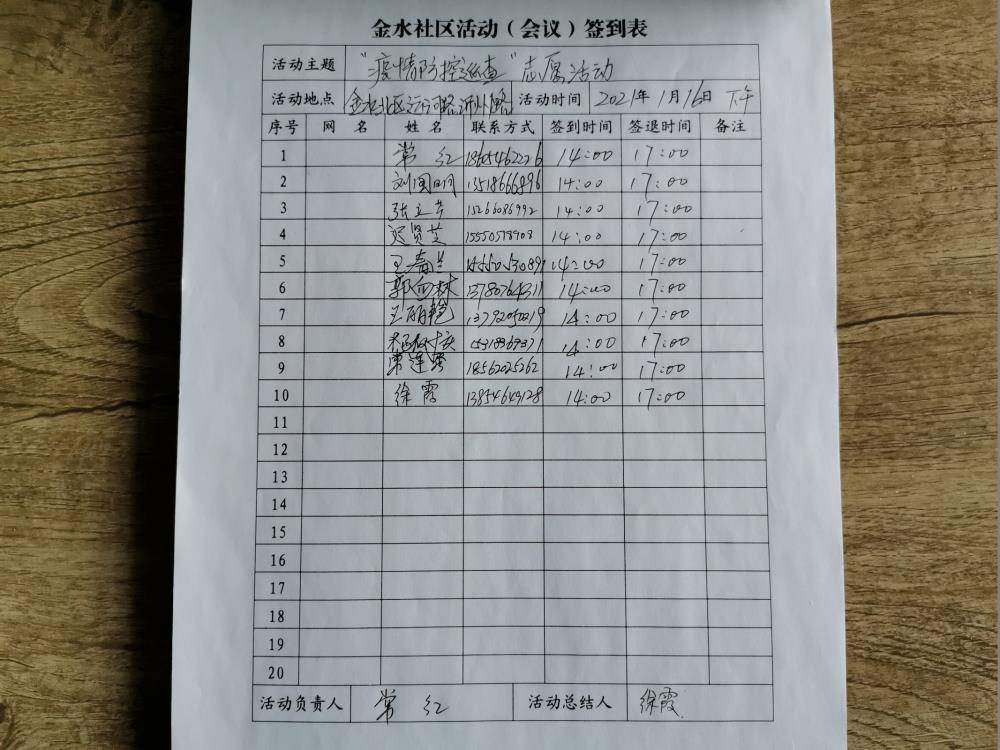 金水社区活动（会议）签到表
活动主题 "疫情防控巡查"志愿活动
活动地点 金水北区运河路沂州路 活动时间 2021年1月16日 下午
序号 网 名 姓 名 联系方式 签到时间 签退时间 备注
1 常 红 18605462276 14:00 17:00
2 刘国明 13518666896 14:00 17:00
3 张立芳 15266086992 14:00 17:00
4 迟贤芝 15550578908 14:00 17:00
5 王春兰 14:00 17:00
6 郭 林 13780764311 14:00 17:00
7 王丽艳 14:00 17:00
8 14:00 17:00
9 常连 18562025262 14:00 17:00
10 徐霞 13854649128 14:00 17:00
11
12
13
14
15
16
17
18
19
20
活动负责人 常 红 活动总结人 徐霞